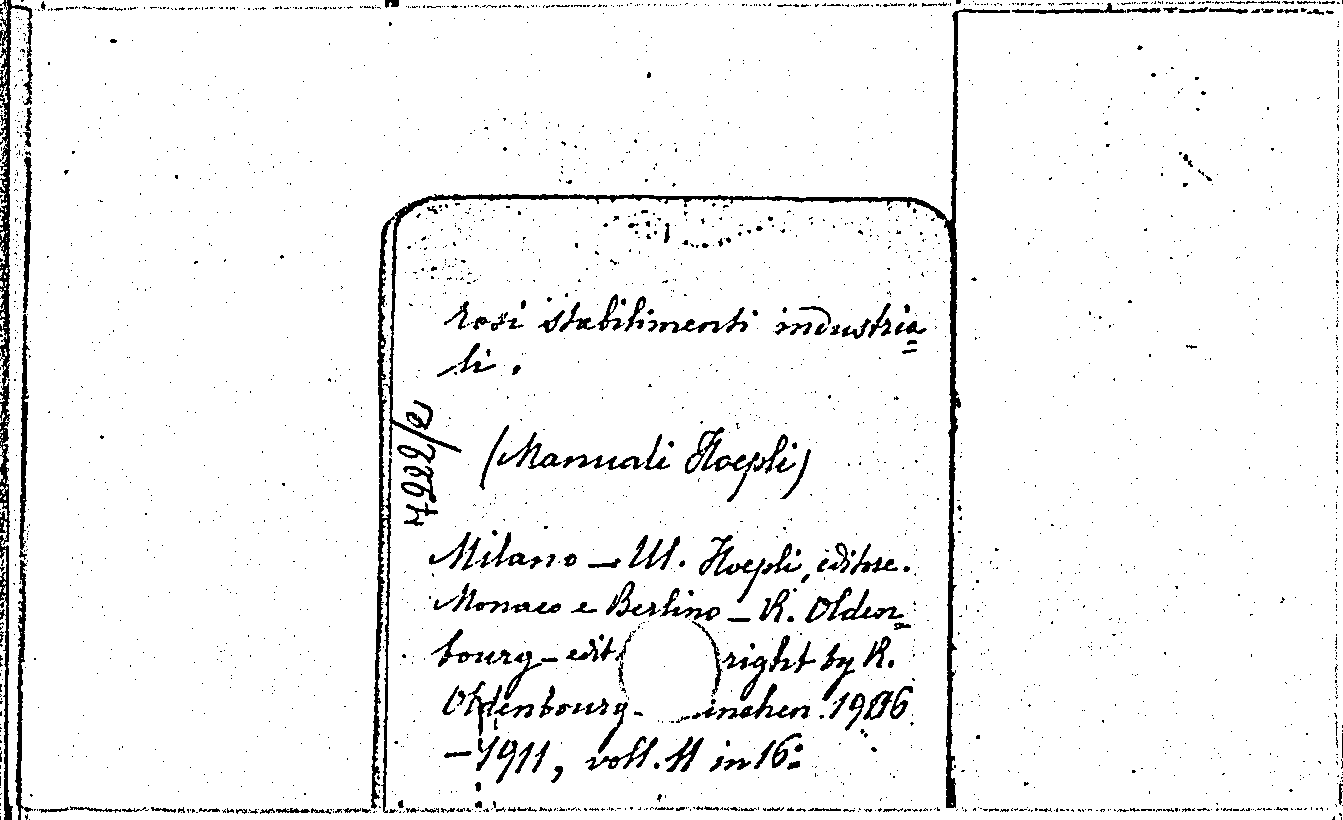 rosi stabilimenti industria=
li.
(Manuali Hoepli)
Milano – U. Hoepli, editore.
Monaco e Berlino – R. Olden=
bourg – edit right by R.
Oldenbourg. – ünchen. 1906
– 1911, voll. 11 in 16: